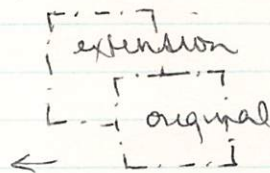 extension
original